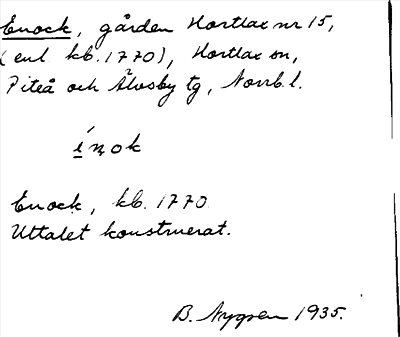 Enock, gården Hortlax nr 15,
(enl kb. 1770), Hortlax sn,
Piteå och Älvsby tg, Norrb. l.
ínok
Enock, kb. 1770
Uttalet konstruerat.
B. Nygren 1935.